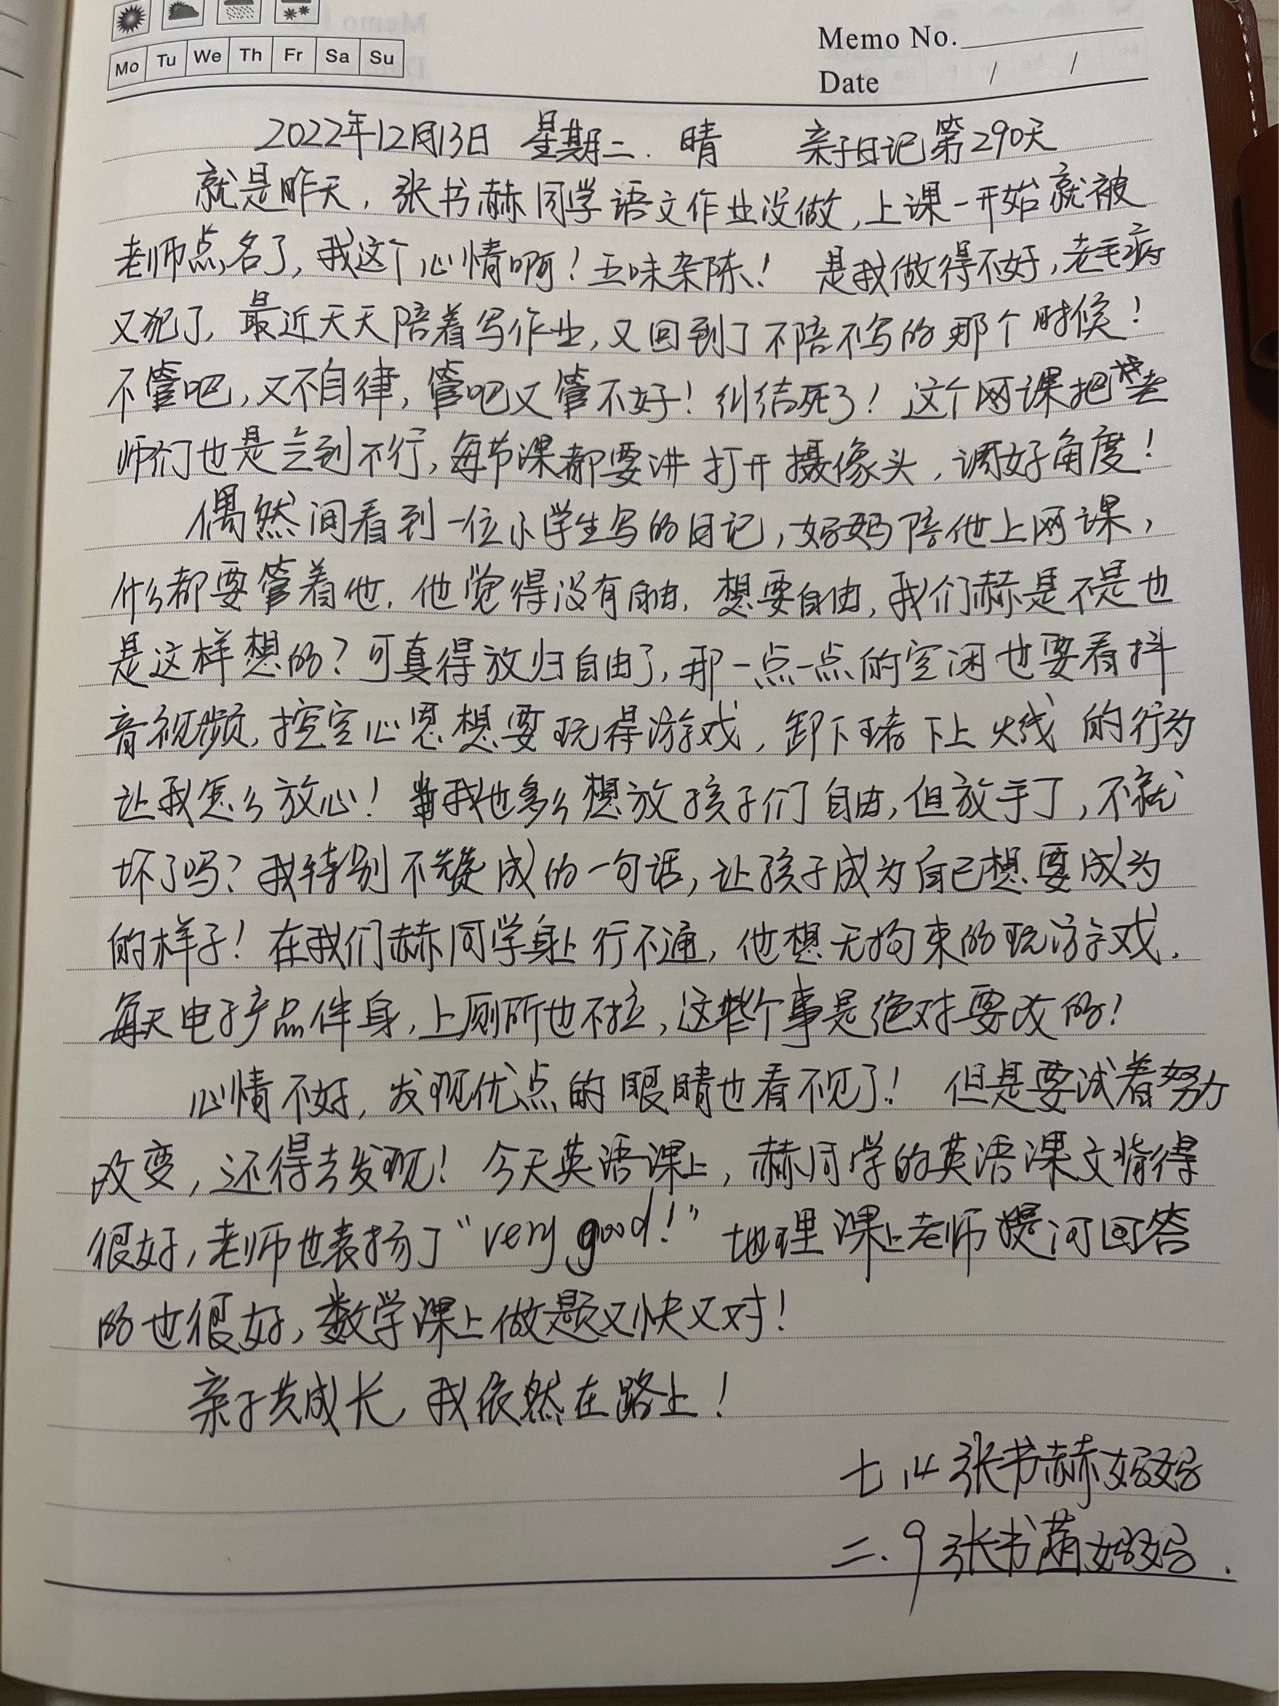 Mo Tu We Th Fr Sa Su
Memo No.
Date / /
2022年12月13日 星期二. 晴 亲子日记第290天
就是昨天，张书赫同学语文作业没做，上课一开始就被
老师点名了，我这个心情啊！五味杂陈！ 是我做得不好，老毛病
又犯了，最近天天陪着写作业，又回到了不陪不写的那个时候！
不管吧，又不自律，管吧又管不好！纠结死了！这个网课把老
师们也是气到不行，每节课都要讲打开摄像头，调好角度！
偶然间看到一位小学生写的日记，妈妈陪他上网课，
什么都要管着他，他觉得没有自由，想要自由，我们赫是不是也
是这样想的？可真得放归自由了，那一点一点的空闲也要看抖
音视频，挖空心思想要玩得游戏，卸下 下上火线 的行为
让我怎么放心！我也多么想放孩子们自由，但放手了，不就
坏了吗？我特别不赞成的一句话，让孩子成为自己想要成为
的样子！在我们赫同学身上行不通，他想无拘束的玩游戏，
每天电子产品伴身，上厕所也不拉，这些个事是绝对要改的！
心情不好，发现优点的眼睛也看不见了！ 但是要试着努力
改变，还得去发现！今天英语课上，赫同学的英语课文背得
很好，老师也表扬了“very good！” 地理课上老师提问回答
的也很好，数学课上做题又快又对！
亲子共成长，我依然在路上！
七.14 张书赫妈妈
二.9 张书萌妈妈.